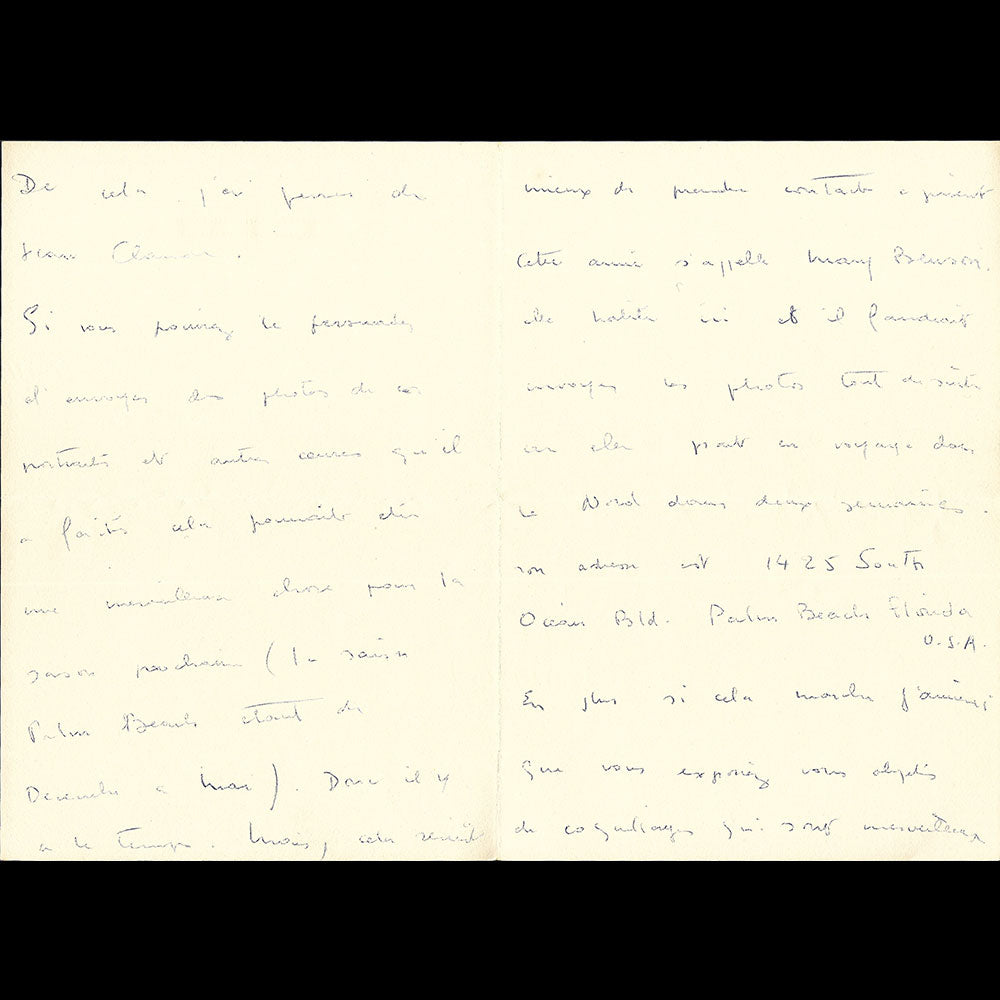 De cela j'ai pensé de
Jean Clement.
Si vous pouviez le persuader
d'envoyer des photos de ces
portraits et autres oeuvres qu'il
a faites cela pourrait être
une merveilleuse chose pour la
saison prochaine (la saison
Palm Beach étant de
Decembre a Mai). Donc il y
a le temps. Mais, cela serait
mieux de prendre contacte a présent
Cette amie s'appelle Mary Benson.
Elle habite ici et il faudrait
envoyer les photos tout de suite
car elle part en voyage dans
le Nord dans deux semaines.
son adresse est 1425 South
Océan Bld. Palm Beach Florida
U.S.A.
En plus si cela marche j'aimerai
que vous exposiez vos objets
de coquillages qui sont merveilleux